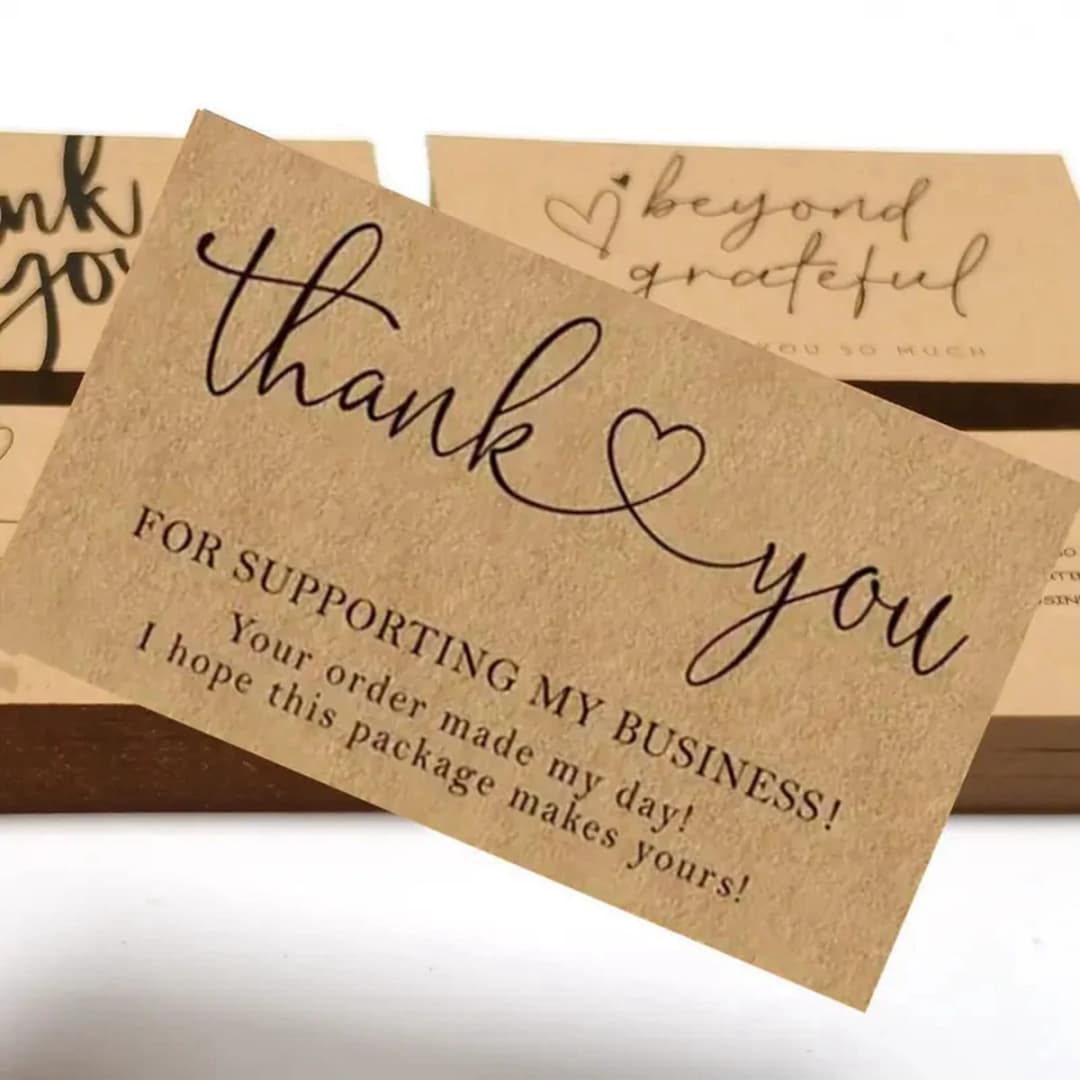 thank you
FOR SUPPORTING MY BUSINESS!
Your order made my day!
I hope this package makes yours!
beyond
grateful
YOU SO MUCH
you